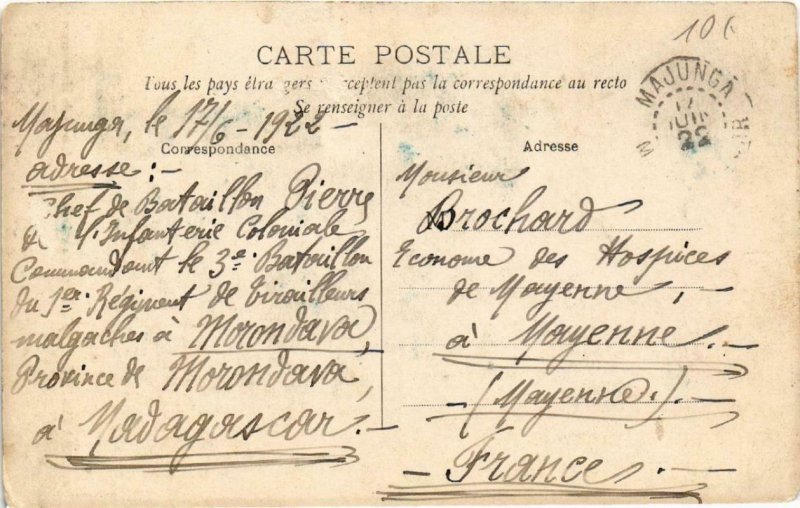 106
CARTE POSTALE
Tous les pays étrangers n'acceptent pas la correspondance au recto
Se renseigner à la poste
MAJUNGA
17
JUIN
22
Majunga, le 17/6 - 1922 -
Correspondance
adresse :-
Chef de Bataillon Pierre
de l'Infanterie Coloniale
Commandant le 3e Bataillon
du 1er Régiment de Tirailleurs
malgaches à Morondava,
Province de Morondava,
à Madagascar. -
Adresse
Monsieur
Brochard
Econome des Hospices
de Mayenne, -
à Mayenne. -
- (Mayenne). -
- France. -